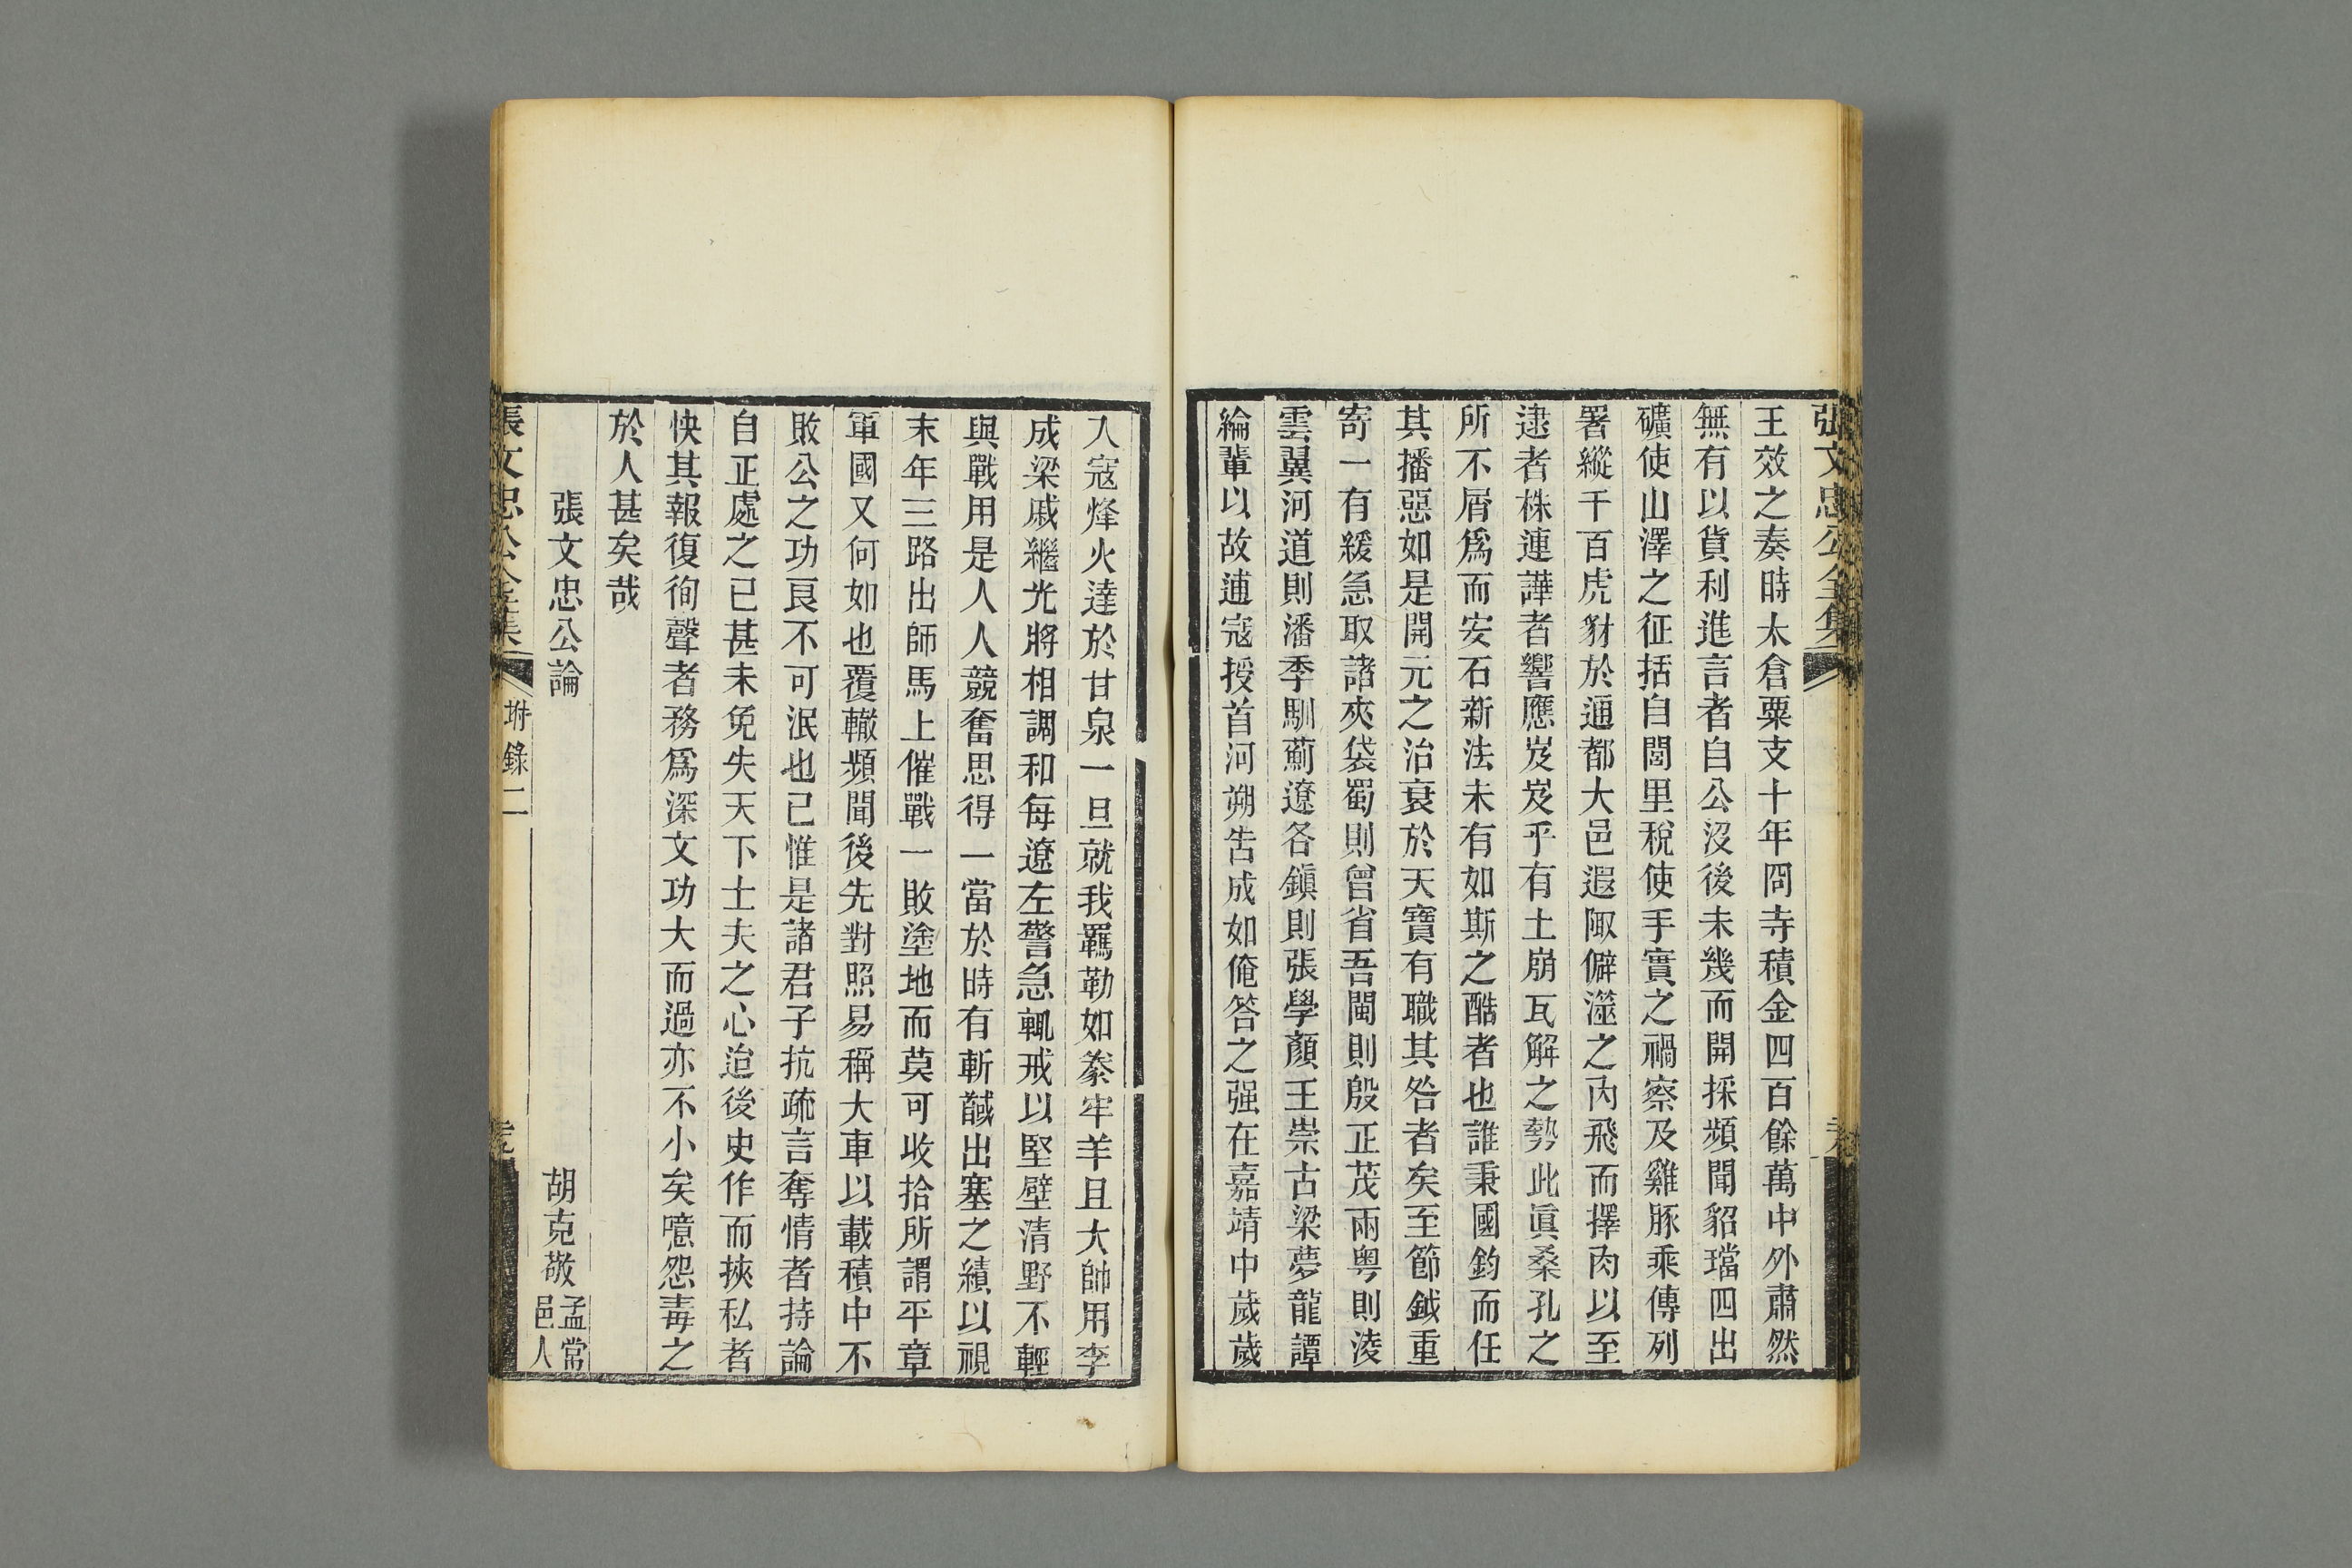 張文忠公全集
王效之奏時太倉粟支十年冏寺積金四百餘萬中外肅然
無有以貨利進言者自公沒後未幾而開採頻聞貂璫四出
礦使山澤之征括自閭里稅使手實之禍察及雞豚乘傳列
署縱千百虎豺於通都大邑遐陬僻澨之內飛而擇肉以至
逮者株連譁者響應岌岌乎有土崩瓦解之勢此眞桑孔之
所不屑爲而安石新法未有如斯之酷者也誰秉國鈞而任
其播惡如是開元之治衰於天寶有職其咎者矣至節鉞重
寄一有緩急取諸夾袋蜀則曾省吾閩則殷正茂兩粵則淩
雲翼河道則潘季馴薊遼各鎭則張學顏王崇古梁夢龍譚
綸輩以故逋寇授首河朔告成如俺答之强在嘉靖中歲歲
入寇烽火達於甘泉一旦就我羈勒如豢牢羊且大帥用李
成梁戚繼光將相調和每遼左警急輒戒以堅壁清野不輕
與戰用是人人競奮思得一當於時有斬馘出塞之績以視
末年三路出師馬上催戰一敗塗地而莫可收拾所謂平章
軍國又何如也覆轍頻聞後先對照易稱大車以載積中不
敗公之功良不可泯也已惟是諸君子抗疏言奪情者持論
自正處之已甚未免失天下士夫之心迨後史作而挾私者
快其報復徇聲者務爲深文功大而過亦不小矣噫怨毒之
於人甚矣哉
張文忠公論
胡克敬 孟常邑人
張文忠公全集 坿錄二